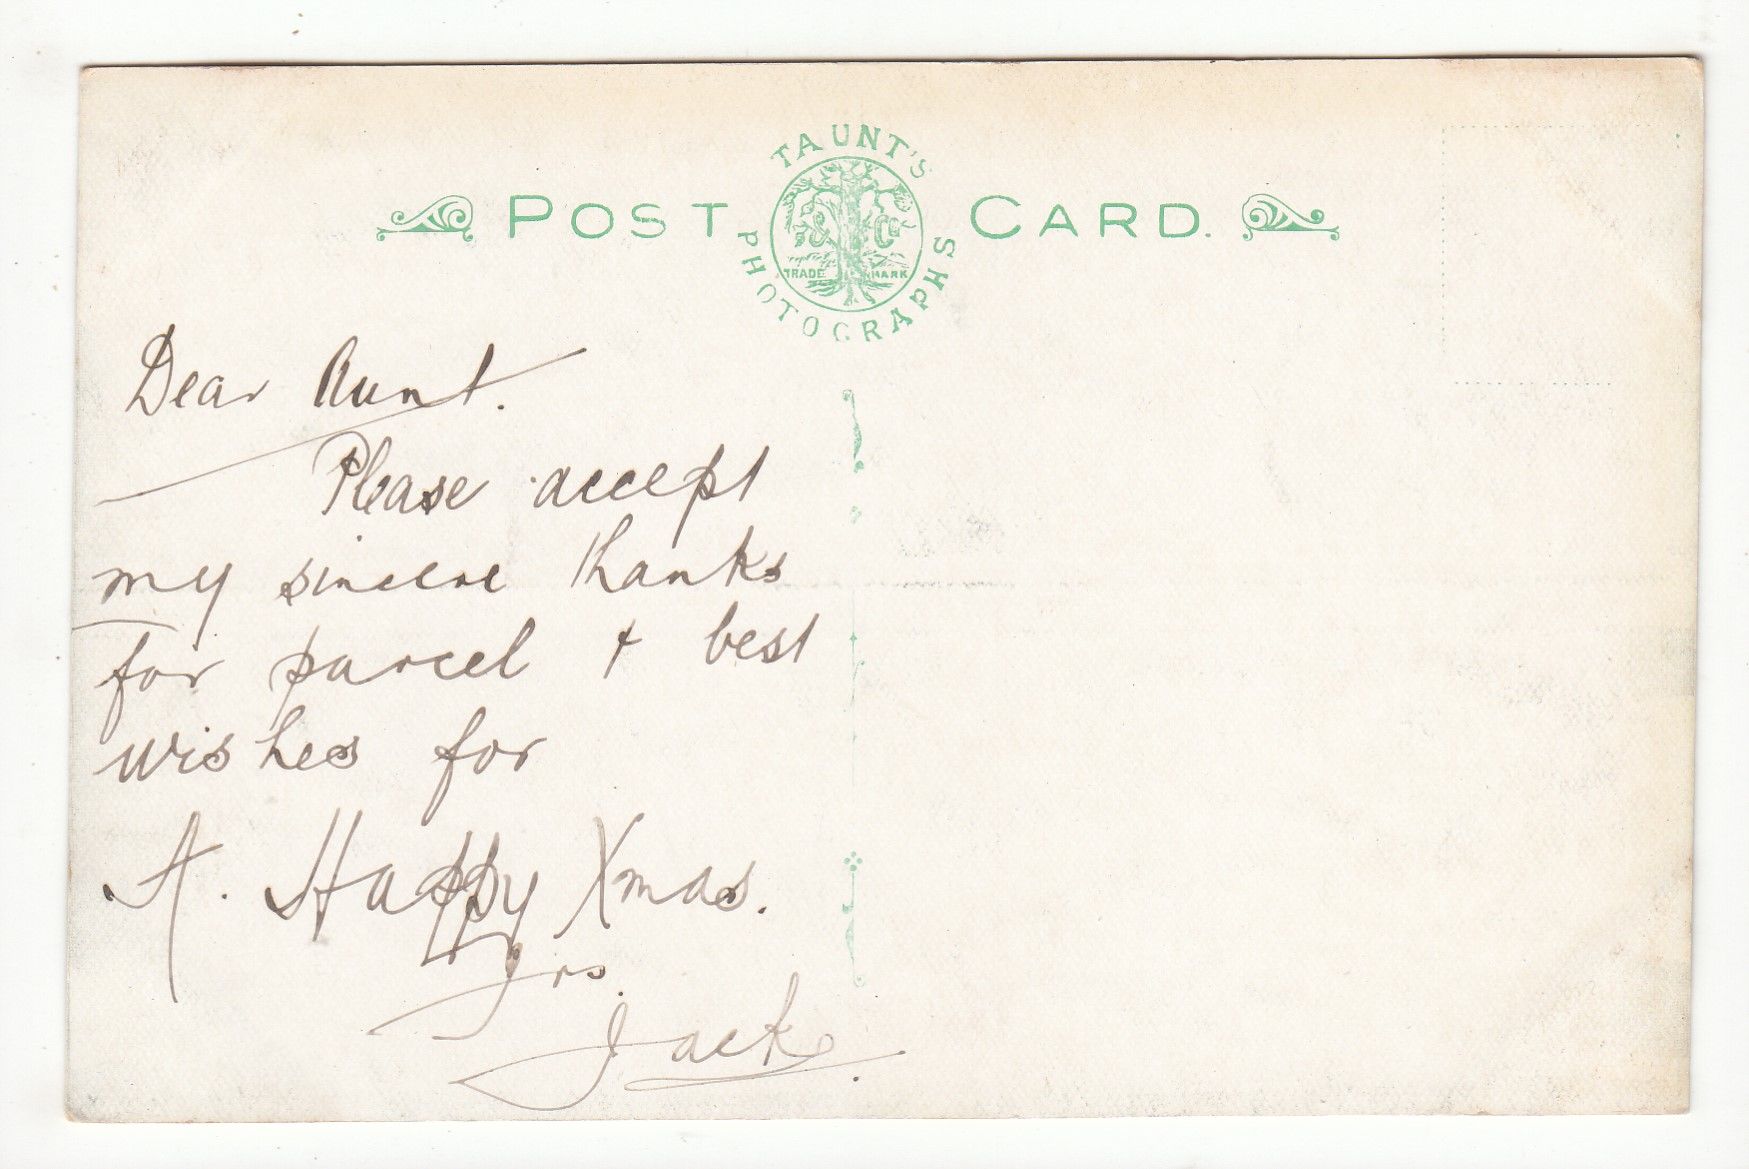 TAUNT'S
POST CARD.
& Co
TRADE MARK
PHOTOGRAPHS
Dear Aunt.
Please accept
my sincere thanks
for parcel & best
wishes for
A. Happy Xmas.
Yrs.
Jack.